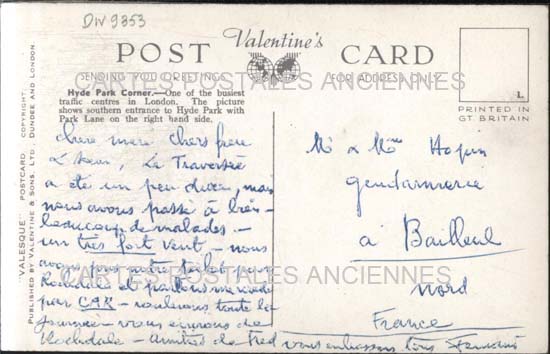 DIV 9853
POST Valentine's CARD
SENDING YOU GREETINGS
FOR ADDRESS ONLY
CARTES POSTALES ANCIENNES
Hyde Park Corner.—One of the busiest
traffic centres in London. The picture
shows southern entrance to Hyde Park with
Park Lane on the right hand side.
L
PRINTED IN
GT. BRITAIN
"VALESQUE" POSTCARD COPYRIGHT.
PUBLISHED BY VALENTINE & SONS, LTD. DUNDEE AND LONDON.
chère mère chers frère
& sœur, La Traversée
a été un peu dure, mais
nous avons passé à
beaucoup de malades. —
un très fort vent — nous
avons notre
et partons mercredi
par CAR — roulerons toute la
journée — vous écrirons de
Rochdale — Amitiés de Fred
vous embrassons tous
Mr & Mme
gendarmerie
à Bailleul
Nord
France
CARTES POSTALES ANCIENNES